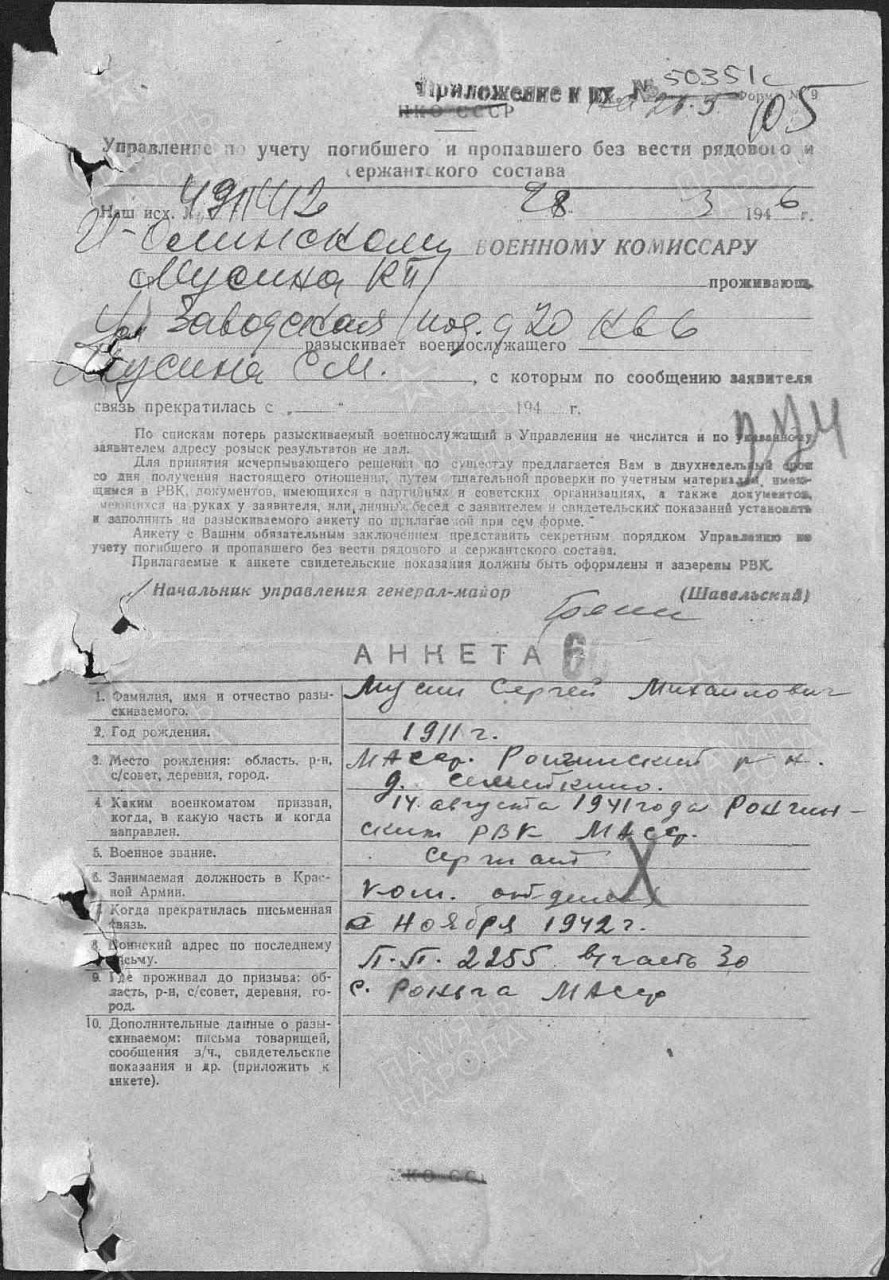 Приложение к их. № 50351с
НКО СССР Форма № 9
105
Управление по учету погибшего и пропавшего без вести рядового и
сержантского состава
Наш исх. № 28 3 1946 г.
И-Олинскому ВОЕННОМУ КОМИССАРУ
Мусина КП проживающ.
ул Заводская д 20 кв 6
разыскивает военнослужащего
Мусина С М. , с которым по сообщению заявителя
связь прекратилась с „ " 194 г.
По спискам потерь разыскиваемый военнослужащий в Управлении не числится и по указанному
заявителем адресу розыск результатов не дал.
Для принятия исчерпывающего решения по существу предлагается Вам в двухнедельный срок
со дня получения настоящего отношения, путем тщательной проверки по учетным материалам, имею-
щимся в РВК, документов, имеющихся в партийных и советских организациях, а также документов,
имеющихся на руках у заявителя, или личных бесед с заявителем и свидетельских показаний установить
и заполнить на разыскиваемого анкету по прилагаемой при сем форме."
Анкету с Вашим обязательным заключением представить секретным порядком Управлению по
учету погибшего и пропавшего без вести рядового и сержантского состава.
Прилагаемые к анкете свидетельские показания должны быть оформлены и заверены РВК.
Начальник управления генерал-майор (Шавельский)
АНКЕТА 6
1. Фамилия, имя и отчество разы-
скиваемого.
Мусин Сергей Михайлович
2. Год рождения.
1911 г.
3. Место рождения: область, р-н,
с/совет, деревня, город.
МАССР. Ронгинский р-н.
д. Семейкино.
4 Каким военкоматом призван,
когда, в какую часть и когда
направлен.
14 августа 1941 года Ронгин-
ским РВК МАССР.
5. Военное звание.
Сержант
6. Занимаемая должность в Крас-
ной Армии.
ком. отделен
7. Когда прекратилась письменная
связь.
с Ноября 1942 г.
8. Воинский адрес по последнему
письму.
П.П. 2255 в/часть 30
9. Где проживал до призыва: об-
ласть, р-н, с/совет, деревня, го-
род.
с. Роньга МАССР
10. Дополнительные данные о разы-
скиваемом: письма товарищей,
сообщения з/ч., свидетельские
показания и др. (приложить к
анкете).
НКО СССР
ПАМЯТЬ
НАРОДА